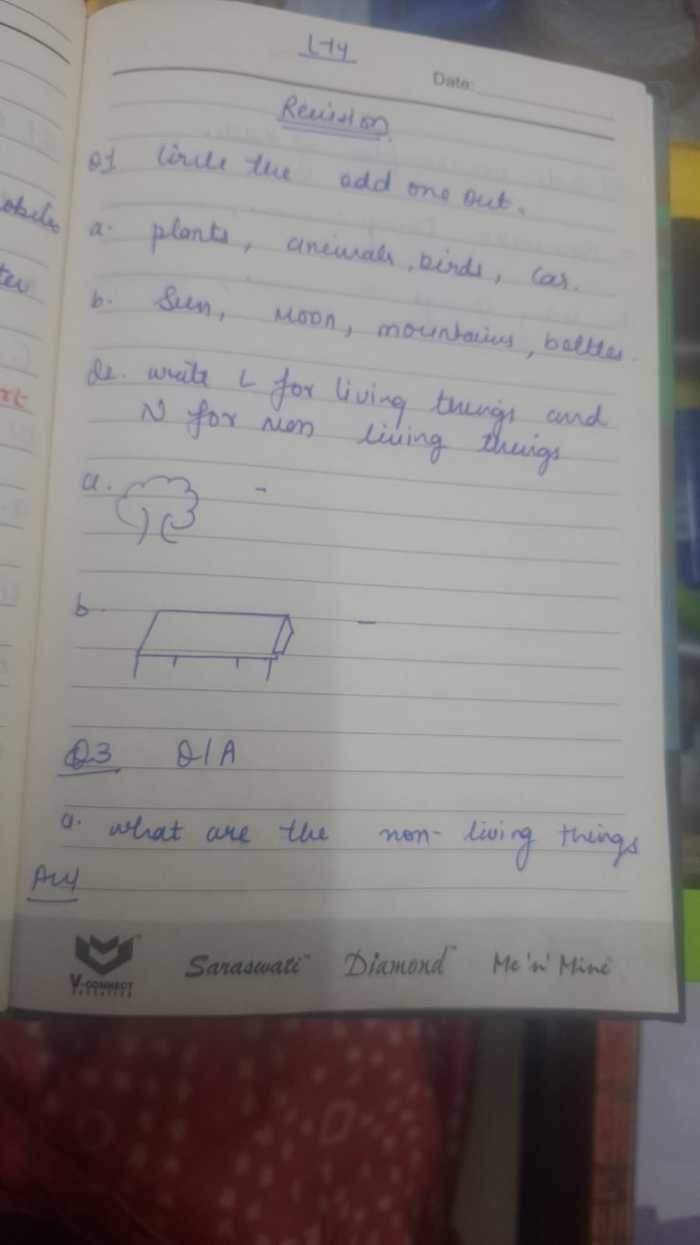 L-14
Date:
Revision
Q1 Circle the odd one out.
a. plants, animals, birds, Car.
b. Sun, Moon, mountains, bottles.
Q2. write L for living things and
N for Non living things
a. -
b. -
Q3 Q/A
a. what are the non-living things
Ans
V-CONNECT
EDUCATION
Saraswati™ Diamond™ Me 'n' Mine